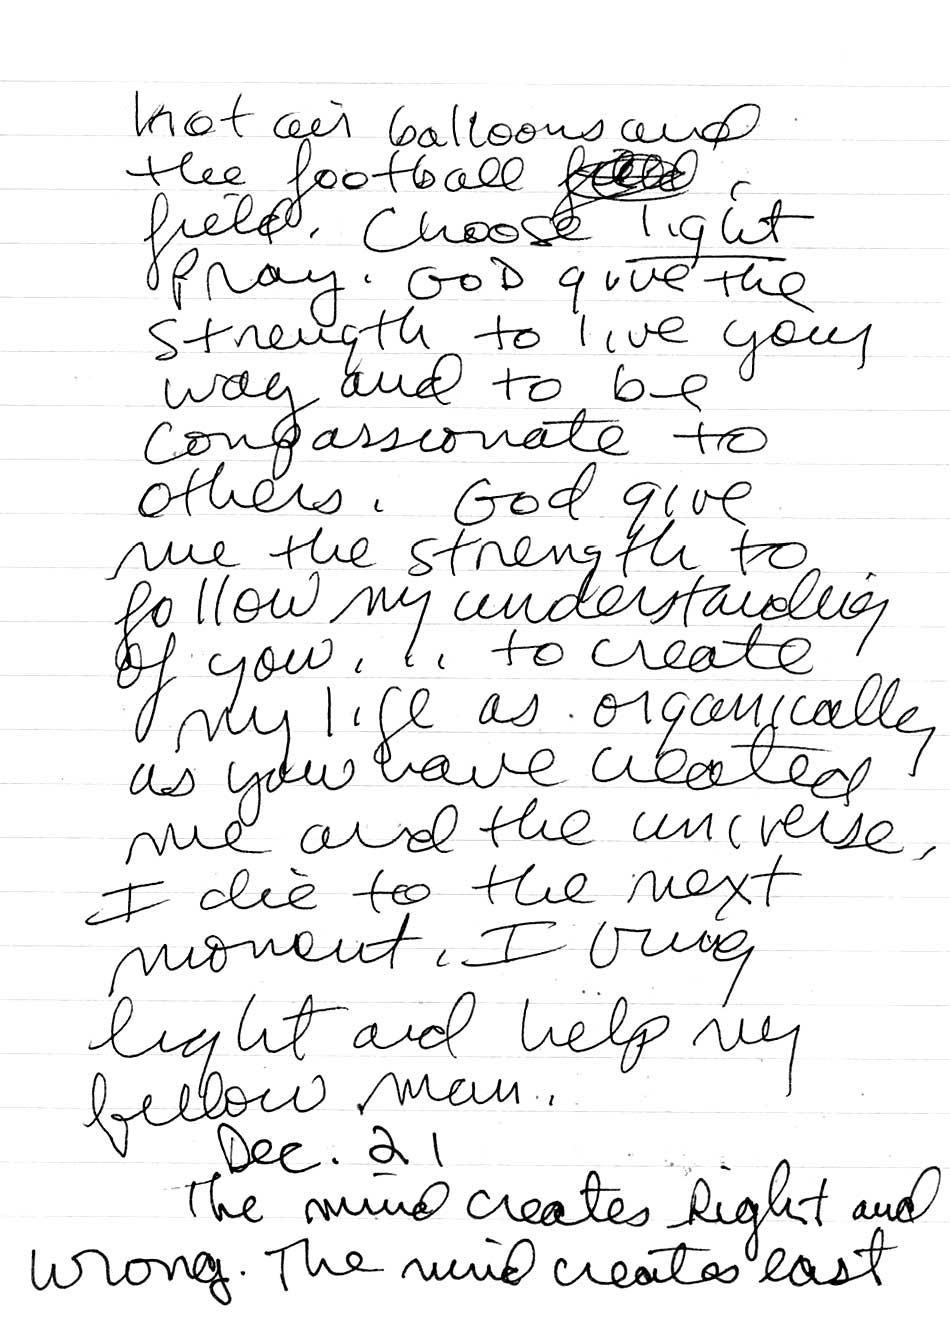 hot air balloons and
the football
field. Choose light
Pray. GOD give the
strength to live your
way and to be
compassionate to
others. God give
me the strength to
follow my understanding
of you... to create
my life as organically
as you have created
me and the universe.
I die to the next
moment. I bring
light and help my
fellow man.
Dec. 21
The mind creates Right and
wrong. The mind creates east